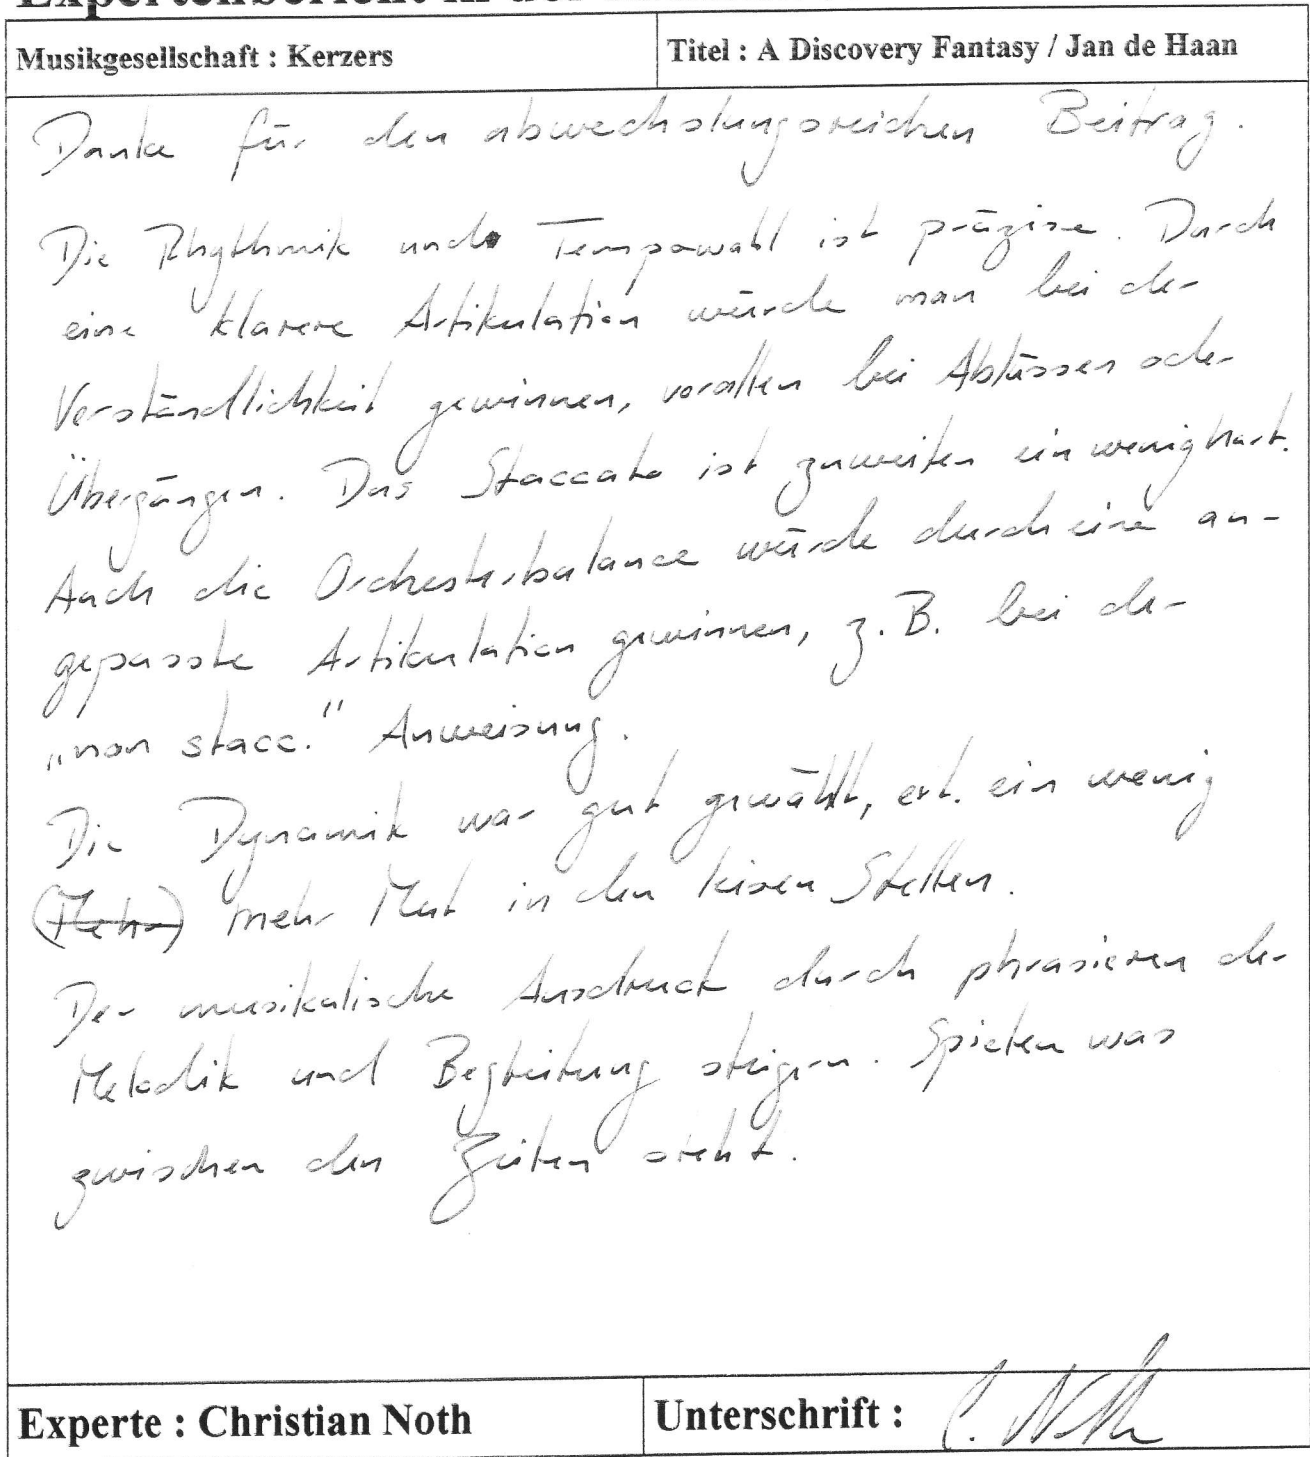 Expertenbericht in der
Musikgesellschaft : Kerzers
Titel : A Discovery Fantasy / Jan de Haan
Danke für den abwechslungsreichen Beitrag.
Die Rhythmik und Tempowahl ist präzise. Durch
eine klarere Artikulation würde man bei der
Verständlichkeit gewinnen, vorallen bei Abläsen oder
Übergängen. Das Staccato ist zuweilen ein wenig hart.
Auch die Orchesterbalance würde durch eine an-
gepasste Artikulation gewinnen, z.B. bei der
„non stacc." Anweisung.
Die Dynamik war gut gewählt, evt. ein wenig
(Mehr) mehr Mut in den leisen Stellen.
Der musikalische Ausdruck durch phrasieren der
Melodik und Begleitung steigern. Spielen was
zwischen den Zeilen steht.
Experte : Christian Noth
Unterschrift :
C. Noth